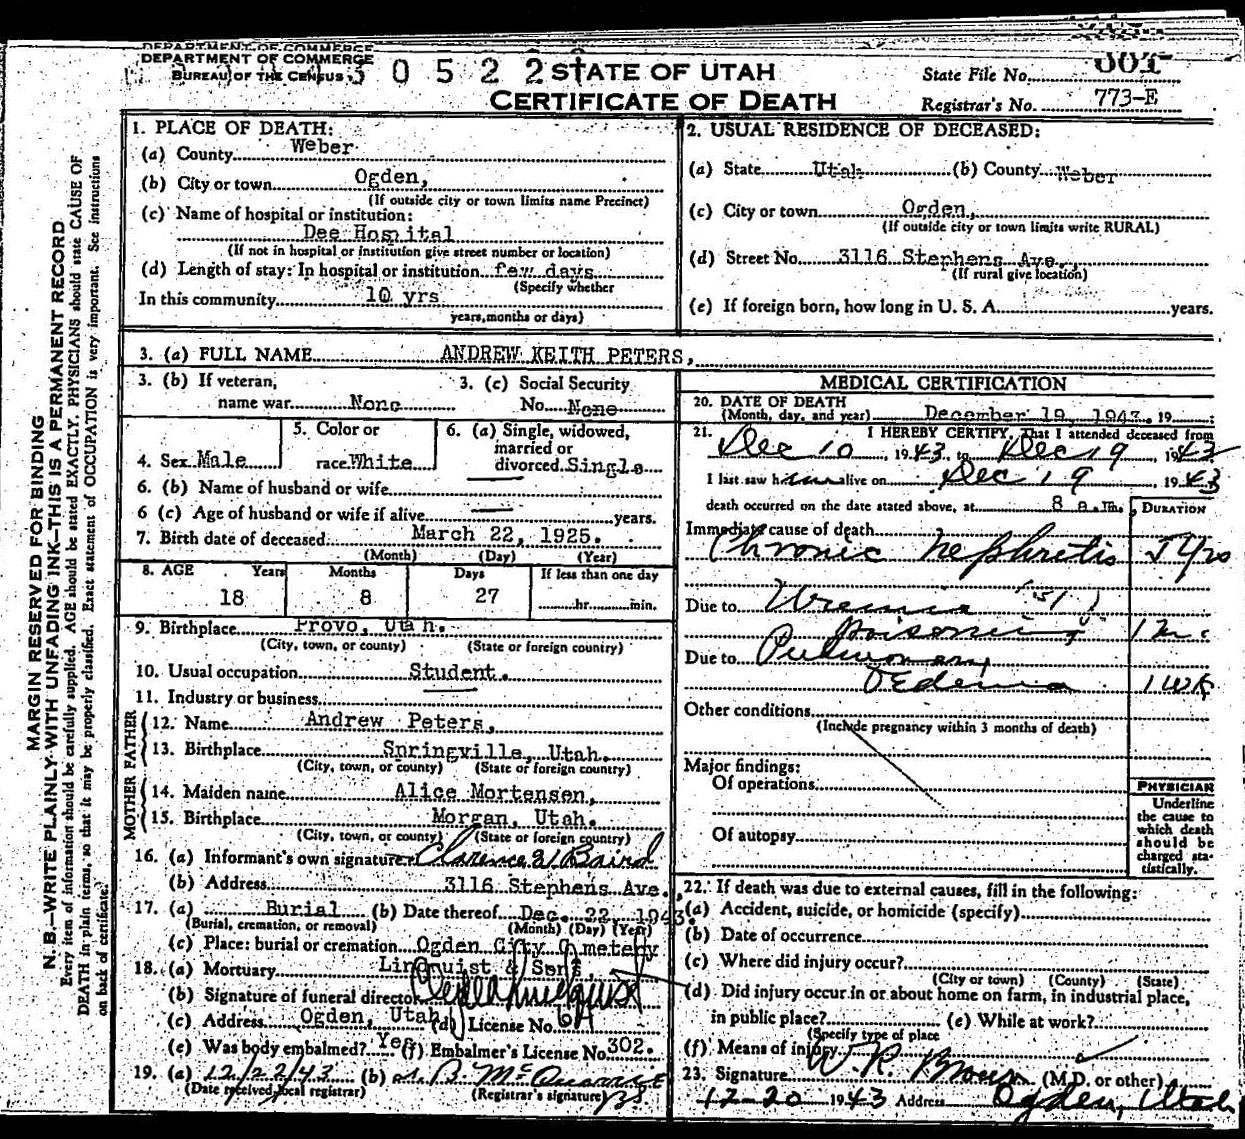 DEPARTMENT OF COMMERCE
DEPARTMENT OF COMMERCE
BUREAU OF THE CENSUS
0 5 2 2
STATE OF UTAH
CERTIFICATE OF DEATH
State File No.
Registrar's No. 773-E
MARGIN RESERVED FOR BINDING
N. B.—WRITE PLAINLY WITH UNFADING INK—THIS IS A PERMANENT RECORD
Every item of information should be carefully supplied. AGE should be stated EXACTLY. PHYSICIANS should state CAUSE OF
DEATH in plain terms, so that it may be properly classified. Exact statement of OCCUPATION is very important. See instructions
on back of certificate.
1. PLACE OF DEATH:
(a) County Weber
(b) City or town Ogden,
(If outside city or town limits name Precinct)
(c) Name of hospital or institution:
Dee Hospital
(If not in hospital or institution give street number or location)
(d) Length of stay: In hospital or institution few days
(Specify whether
In this community 10 yrs
years, months or days)
2. USUAL RESIDENCE OF DECEASED:
(a) State Utah (b) County Weber
(c) City or town Ogden,
(If outside city or town limits write RURAL)
(d) Street No. 3116 Stephens Ave.,
(If rural give location)
(e) If foreign born, how long in U. S. A. years.
3. (a) FULL NAME ANDREW KEITH PETERS,
3. (b) If veteran,
name war None
3. (c) Social Security
No. None
4. Sex Male
5. Color or
race White
6. (a) Single, widowed,
married or
divorced Single
6. (b) Name of husband or wife
6 (c) Age of husband or wife if alive years.
7. Birth date of deceased March 22, 1925.
(Month) (Day) (Year)
8. AGE Years Months Days If less than one day
18 8 27 hr. min.
9. Birthplace Provo, Utah.
(City, town, or county) (State or foreign country)
10. Usual occupation Student.
11. Industry or business
FATHER
12. Name Andrew Peters,
13. Birthplace Springville, Utah.
(City, town, or county) (State or foreign country)
MOTHER
14. Maiden name Alice Mortensen,
15. Birthplace Morgan, Utah.
(City, town, or county) (State or foreign country)
16. (a) Informant's own signature Clarence W Baird
(b) Address 3116 Stephens Ave.,
17. (a) Burial (b) Date thereof Dec. 22, 1943.
(Burial, cremation, or removal) (Month) (Day) (Year)
(c) Place: burial or cremation Ogden City Cmetery
18. (a) Mortuary Lindquist & Sons,
(b) Signature of funeral director
(c) Address Ogden, Utah (d) License No. 64
(e) Was body embalmed? Yes (f) Embalmer's License No. 302.
19. (a) 12/22/43 (b)
(Date received local registrar) (Registrar's signature)
MEDICAL CERTIFICATION
20. DATE OF DEATH
(Month, day, and year) December 19, 1943, 19 ;
21. I HEREBY CERTIFY, That I attended deceased from
Dec 10, 1943, to Dec 19, 1943
I last saw him alive on Dec 19, 1943
death occurred on the date stated above, at 8 a.m.
DURATION
Immediate cause of death
Chronic Nephritis 5 yrs
Due to Uremia
Poisoning 1 Mo
Due to Pulmonary
Oedema 1 WK
Other conditions
(Include pregnancy within 3 months of death)
Major findings:
Of operations
Of autopsy
PHYSICIAN
Underline
the cause to
which death
should be
charged sta-
tistically.
22. If death was due to external causes, fill in the following:
(a) Accident, suicide, or homicide (specify)
(b) Date of occurrence
(c) Where did injury occur?
(City or town) (County) (State)
(d) Did injury occur in or about home on farm, in industrial place,
in public place? (e) While at work?
(Specify type of place
(f) Means of injury
23. Signature W. R. Brown (M.D. or other)
12-20 1943 Address Ogden, Utah